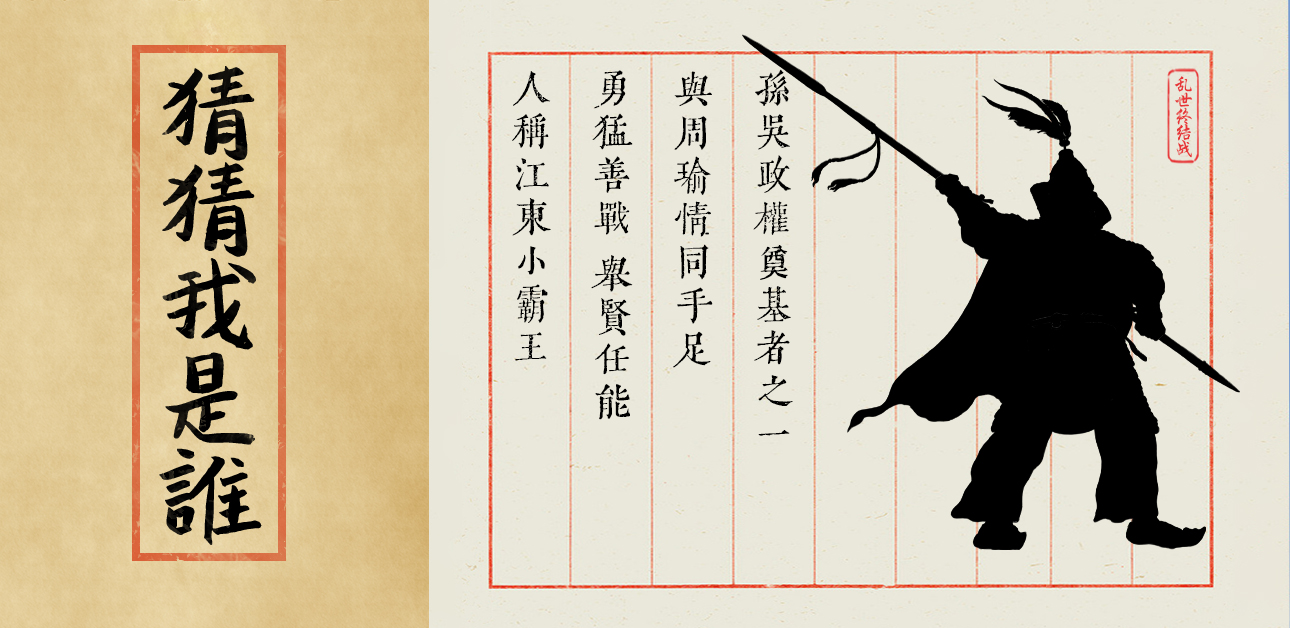 猜猜我是誰
乱世终结战
孫吳政權奠基者之一
與周瑜情同手足
勇猛善戰 舉賢任能
人稱江東小霸王